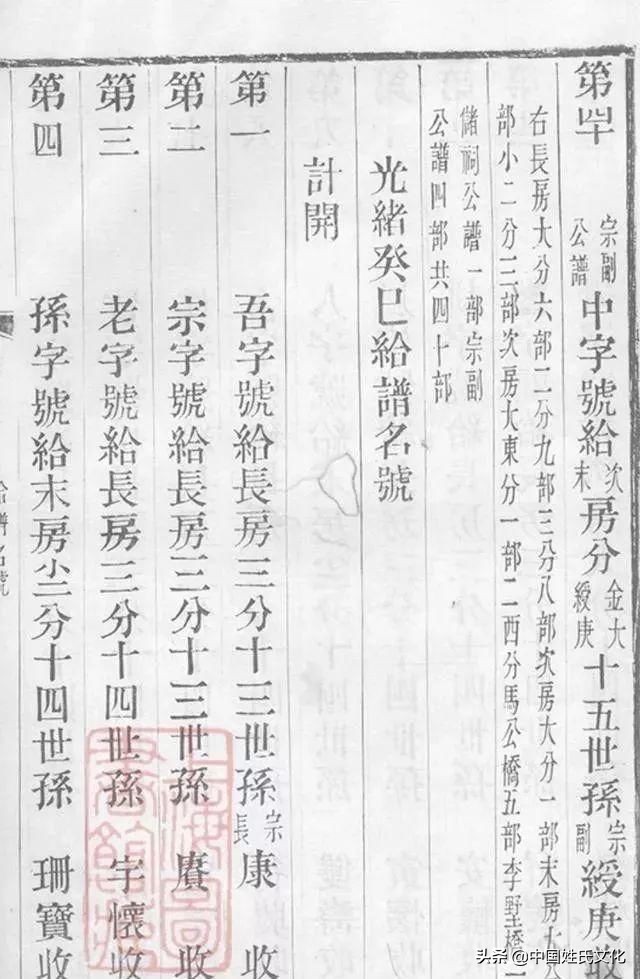 第四十 宗副公譜 中字號給 次末 房分 金大綬庚 十五世孫 宗副 綬庚收
右長房大分六部二分九部三分八部次房大分一部末房大
部小二分三部次房大東分一部二西分馬公橋五部李野橋二
儲祠公譜一部宗副
公譜四部共四十部
光緒癸巳給譜名號
計開
第一 吾字號給長房三分十三世孫 宗長 康 收
第二 宗字號給長房三分十三世孫 賡 收
第三 老字號給長房三分十四世孫 宇懷收
第四 孫字號給末房小二分十四世孫 珊寶收
給譜名號
頭條 @中國姓氏文化